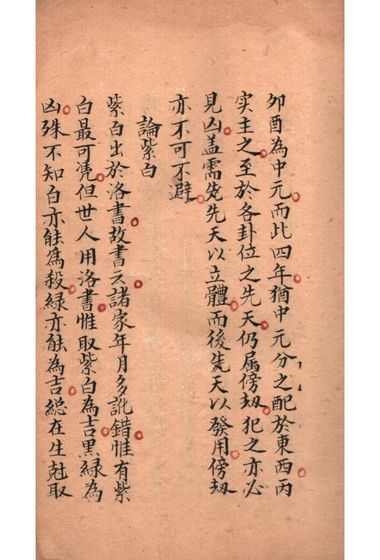 夘酉為中元而此四年猶中元分之配於東西丙
实主之至於各卦位之先天仍属傍刼犯之亦必
見凶盖需先先天以立體而後先天以發用傍刼
亦不可不避
論紫白
紫白出於洛書故書云諸家年月多訛錯惟有紫
白最可凭但世人用洛書惟取紫白為吉黑綠為
凶殊不知白亦能為殺綠亦能為吉總在生尅取